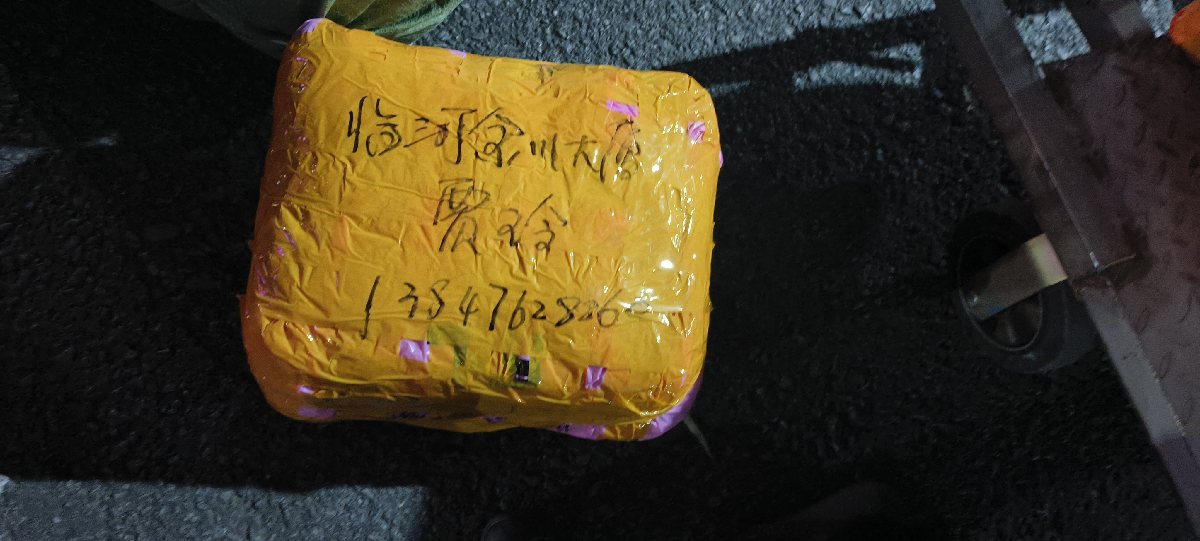 临河金川大店
贾 玲
1384762826